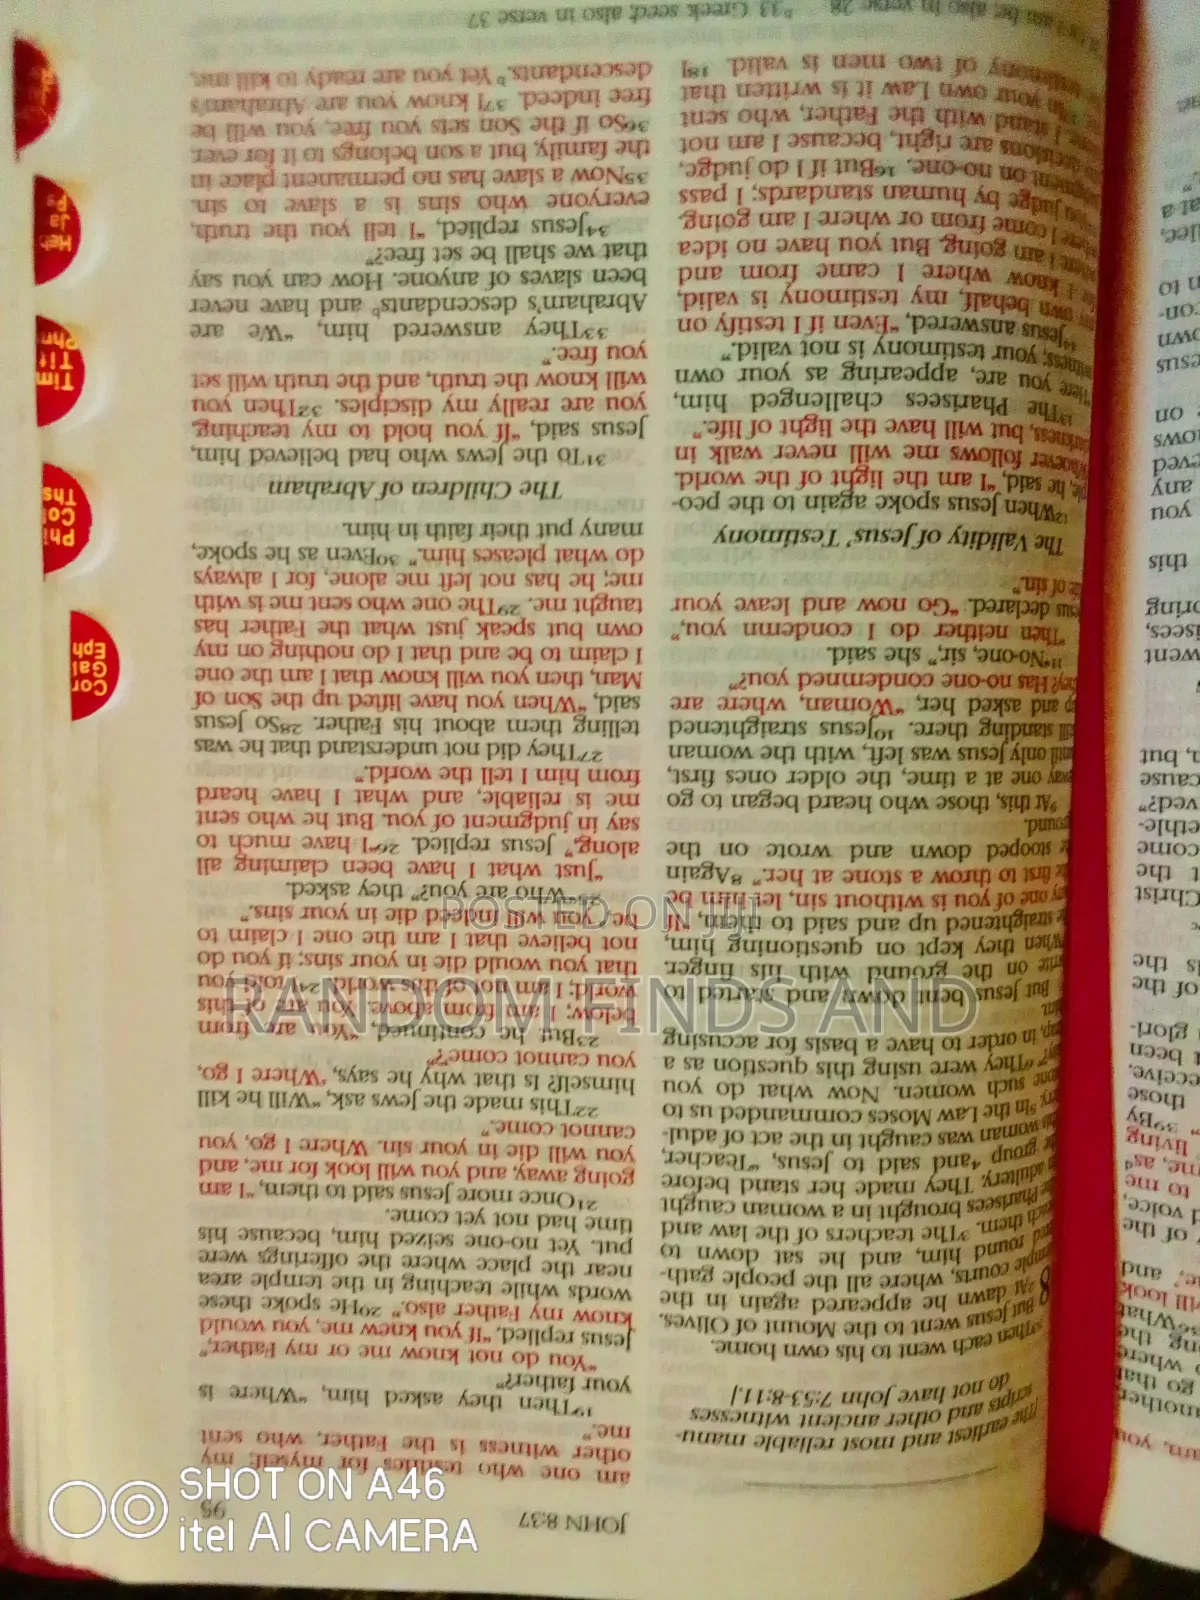 JOHN 8:37
95
[The earliest and most reliable manu-
scripts and other ancient witnesses
do not have John 7:53-8:11.]
53Then each went to his own home.
8 But Jesus went to the Mount of Olives.
2At dawn he appeared again in the
temple courts, where all the people gath-
ered round him, and he sat down to
teach them. 3The teachers of the law and
the Pharisees brought in a woman caught
in adultery. They made her stand before
the group 4and said to Jesus, “Teacher,
this woman was caught in the act of adul-
tery. 5In the Law Moses commanded us to
stone such women. Now what do you
say?” 6They were using this question as a
trap, in order to have a basis for accusing
him.
But Jesus bent down and started to
write on the ground with his finger.
7When they kept on questioning him,
he straightened up and said to them, “If
any one of you is without sin, let him be
the first to throw a stone at her.” 8Again
he stooped down and wrote on the
ground.
9At this, those who heard began to go
away one at a time, the older ones first,
until only Jesus was left, with the woman
still standing there. 10Jesus straightened
up and asked her, “Woman, where are
they? Has no-one condemned you?”
11“No-one, sir,” she said.
“Then neither do I condemn you,”
Jesus declared. “Go now and leave your
life of sin.”
The Validity of Jesus' Testimony
12When Jesus spoke again to the peo-
ple, he said, “I am the light of the world.
Whoever follows me will never walk in
darkness, but will have the light of life.”
13The Pharisees challenged him,
“Here you are, appearing as your own
witness; your testimony is not valid.”
14Jesus answered, “Even if I testify on
my own behalf, my testimony is valid,
for I know where I came from and
where I am going. But you have no idea
where I come from or where I am going.
15You judge by human standards; I pass
judgment on no-one. 16But if I do judge,
my decisions are right, because I am not
alone. I stand with the Father, who sent
me. 17In your own Law it is written that
the testimony of two men is valid. 18I
am one who testifies for myself; my
other witness is the Father, who sent
me.”
19Then they asked him, “Where is
your father?”
“You do not know me or my Father,”
Jesus replied. “If you knew me, you would
know my Father also.” 20He spoke these
words while teaching in the temple area
near the place where the offerings were
put. Yet no-one seized him, because his
time had not yet come.
21Once more Jesus said to them, “I am
going away, and you will look for me, and
you will die in your sin. Where I go, you
cannot come.”
22This made the Jews ask, “Will he kill
himself? Is that why he says, ‘Where I go,
you cannot come’?”
23But he continued, “You are from
below; I am from above. You are of this
world; I am not of this world. 24I told you
that you would die in your sins; if you do
not believe that I am the one I claim to
be, you will indeed die in your sins.”
25“Who are you?” they asked.
“Just what I have been claiming all
along,” Jesus replied. 26“I have much to
say in judgment of you. But he who sent
me is reliable, and what I have heard
from him I tell the world.”
27They did not understand that he was
telling them about his Father. 28So Jesus
said, “When you have lifted up the Son of
Man, then you will know that I am the one
I claim to be and that I do nothing on my
own but speak just what the Father has
taught me. 29The one who sent me is with
me; he has not left me alone, for I always
do what pleases him.” 30Even as he spoke,
many put their faith in him.
The Children of Abraham
31To the Jews who had believed him,
Jesus said, “If you hold to my teaching,
you are really my disciples. 32Then you
will know the truth, and the truth will set
you free.”
33They answered him, “We are
Abraham's descendants b and have never
been slaves of anyone. How can you say
that we shall be set free?”
34Jesus replied, “I tell you the truth,
everyone who sins is a slave to sin.
35Now a slave has no permanent place in
the family, but a son belongs to it for ever.
36So if the Son sets you free, you will be
free indeed. 37I know you are Abraham's
descendants. b Yet you are ready to kill me,
also in verse 28
b 33 Greek seed; also in verse 37
Cor
Gal
Eph
Phi
Col
Ths
Tim
Tit
Phm
Heb
Ja
Pe
POSTED ON JIJI
RANDOM FINDS AND
SHOT ON A46
itel AI CAMERA